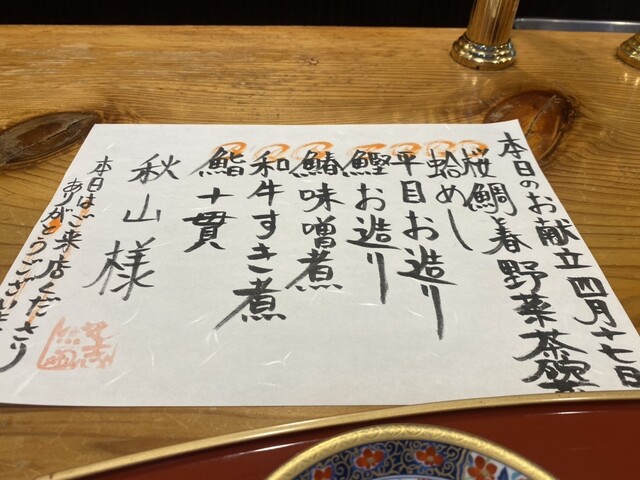 本日のお献立四月十七日
桜鯛春野菜茶碗蒸
蛤めし
平目お造り
鰹お造り
鰆味噌煮
和牛すき煮
鮨十貫
秋山様
本日はご来店くださり
ありがとうございま